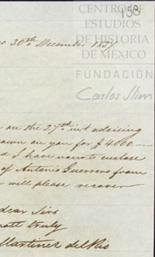 158
CENTRO DE
ESTUDIOS
DE HISTORIA
DE MÉXICO
FUNDACIÓN
Carlos Slim
20th December
on the 27th inst advising
drawn on you for $4000
I have enclose
of Antonio Guerrero from
will please recover
dear Sirs
truly
Martinez del Rio